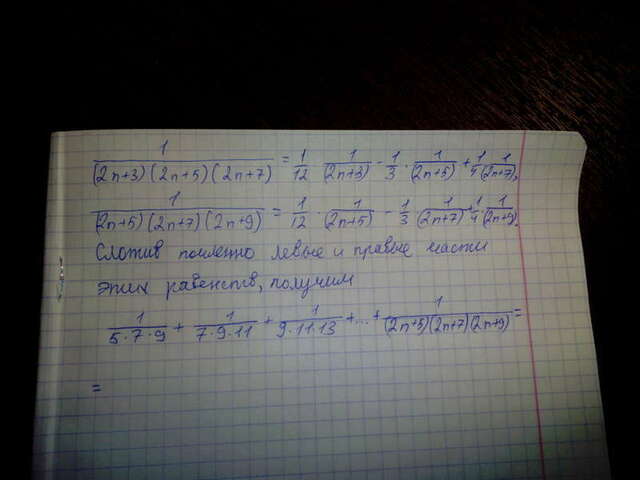 1/((2n+3)(2n+5)(2n+7)) = 1/12 · 1/(2n+3) - 1/3 · 1/(2n+5) + 1/4 1/(2n+7),
1/((2n+5)(2n+7)(2n+9)) = 1/12 · 1/(2n+5) - 1/3 · 1/(2n+7) + 1/4 1/(2n+9).
Сложив почленно левые и правые части
этих равенств, получим
1/(5·7·9) + 1/(7·9·11) + 1/(9·11·13) + ... + 1/((2n+5)(2n+7)(2n+9)) =
=